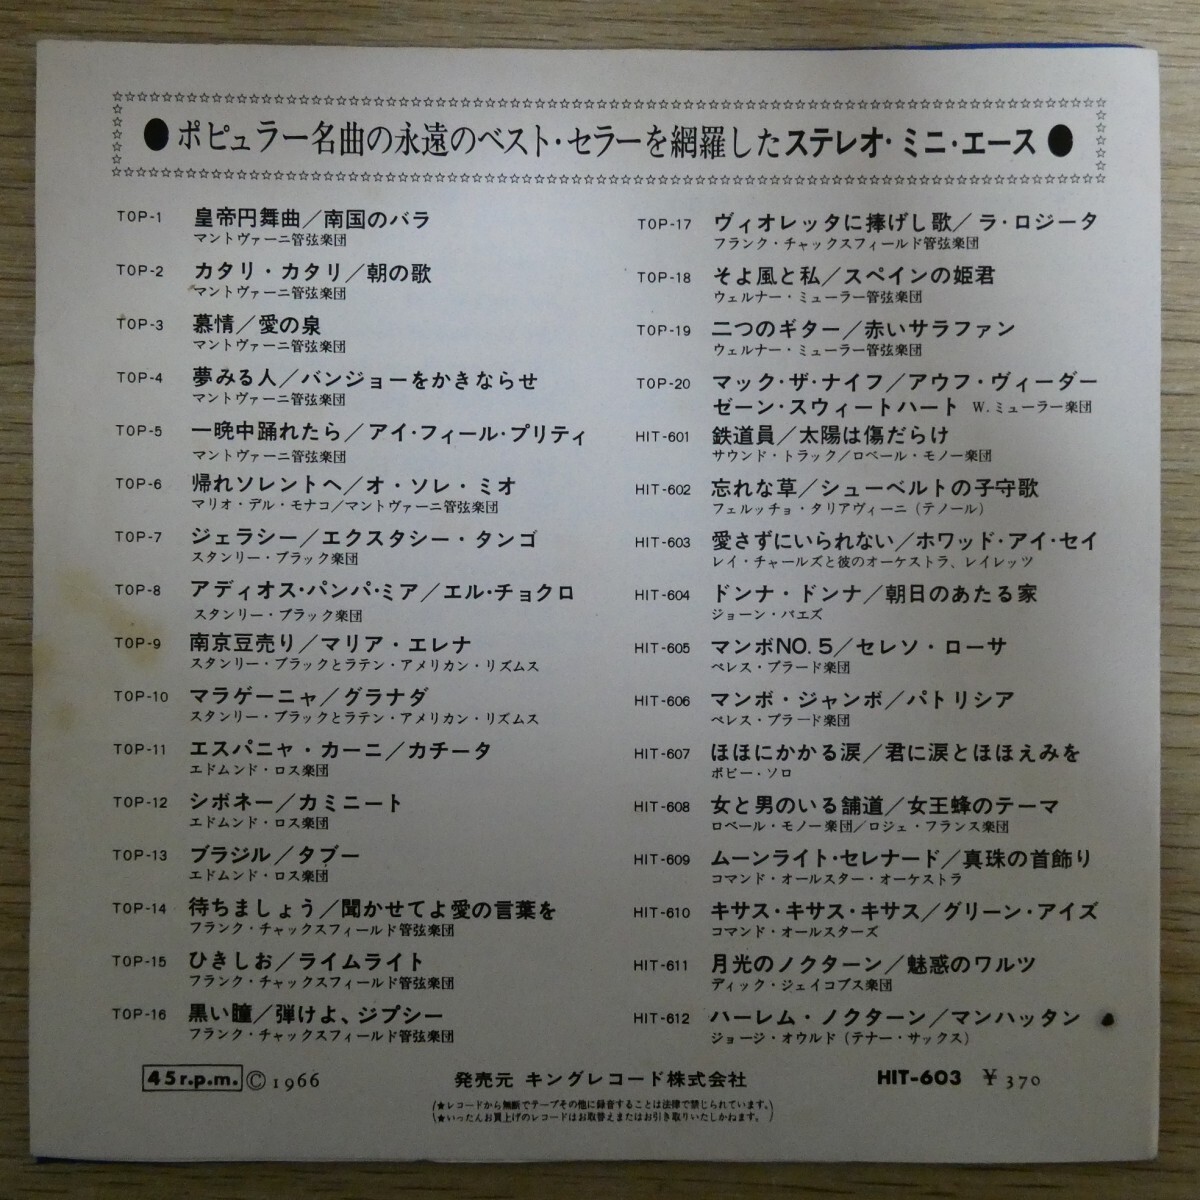 ●ポピュラー名曲の永遠のベスト・セラーを網羅したステレオ・ミニ・エース●
TOP-1 皇帝円舞曲／南国のバラ
マントヴァーニ管弦楽団
TOP-2 カタリ・カタリ／朝の歌
マントヴァーニ管弦楽団
TOP-3 慕情／愛の泉
マントヴァーニ管弦楽団
TOP-4 夢みる人／バンジョーをかきならせ
マントヴァーニ管弦楽団
TOP-5 一晩中踊れたら／アイ・フィール・プリティ
マントヴァーニ管弦楽団
TOP-6 帰れソレントへ／オ・ソレ・ミオ
マリオ・デル・モナコ／マントヴァーニ管弦楽団
TOP-7 ジェラシー／エクスタシー・タンゴ
スタンリー・ブラック楽団
TOP-8 アディオス・パンパ・ミア／エル・チョクロ
スタンリー・ブラック楽団
TOP-9 南京豆売り／マリア・エレナ
スタンリー・ブラックとラテン・アメリカン・リズムス
TOP-10 マラゲーニャ／グラナダ
スタンリー・ブラックとラテン・アメリカン・リズムス
TOP-11 エスパニャ・カーニ／カチータ
エドムンド・ロス楽団
TOP-12 シボネー／カミニート
エドムンド・ロス楽団
TOP-13 ブラジル／タブー
エドムンド・ロス楽団
TOP-14 待ちましょう／聞かせてよ愛の言葉を
フランク・チャックスフィールド管弦楽団
TOP-15 ひきしお／ライムライト
フランク・チャックスフィールド管弦楽団
TOP-16 黒い瞳／弾けよ、ジプシー
フランク・チャックスフィールド管弦楽団
TOP-17 ヴィオレッタに捧げし歌／ラ・ロジータ
フランク・チャックスフィールド管弦楽団
TOP-18 そよ風と私／スペインの姫君
ウェルナー・ミューラー管弦楽団
TOP-19 二つのギター／赤いサラファン
ウェルナー・ミューラー管弦楽団
TOP-20 マック・ザ・ナイフ／アウフ・ヴィーダー
ゼーン・スウィートハート W.ミューラー楽団
HIT-601 鉄道員／太陽は傷だらけ
サウンド・トラック／ロベール・モノー楽団
HIT-602 忘れな草／シューベルトの子守歌
フェルッチョ・タリアヴィーニ（テノール）
HIT-603 愛さずにいられない／ホワッド・アイ・セイ
レイ・チャールズと彼のオーケストラ、レイレッツ
HIT-604 ドンナ・ドンナ／朝日のあたる家
ジョーン・バエズ
HIT-605 マンボNO.5／セレソ・ローサ
ペレス・プラード楽団
HIT-606 マンボ・ジャンボ／パトリシア
ペレス・プラード楽団
HIT-607 ほほにかかる涙／君に涙とほほえみを
ボビー・ソロ
HIT-608 女と男のいる舗道／女王蜂のテーマ
ロベール・モノー楽団／ロジェ・フランス楽団
HIT-609 ムーンライト・セレナード／真珠の首飾り
コマンド・オールスター・オーケストラ
HIT-610 キサス・キサス・キサス／グリーン・アイズ
コマンド・オールスターズ
HIT-611 月光のノクターン／魅惑のワルツ
ディック・ジェイコブス楽団
HIT-612 ハーレム・ノクターン／マンハッタン
ジョージ・オウルド（テナー・サックス）
45r.p.m. ©1966 発売元 キングレコード株式会社 HIT-603 ¥370
★レコードから無断でテープその他に録音することは法律で禁じられています。
★いったんお買上げのレコードはお取替えまたはお引き取りいたしかねます。